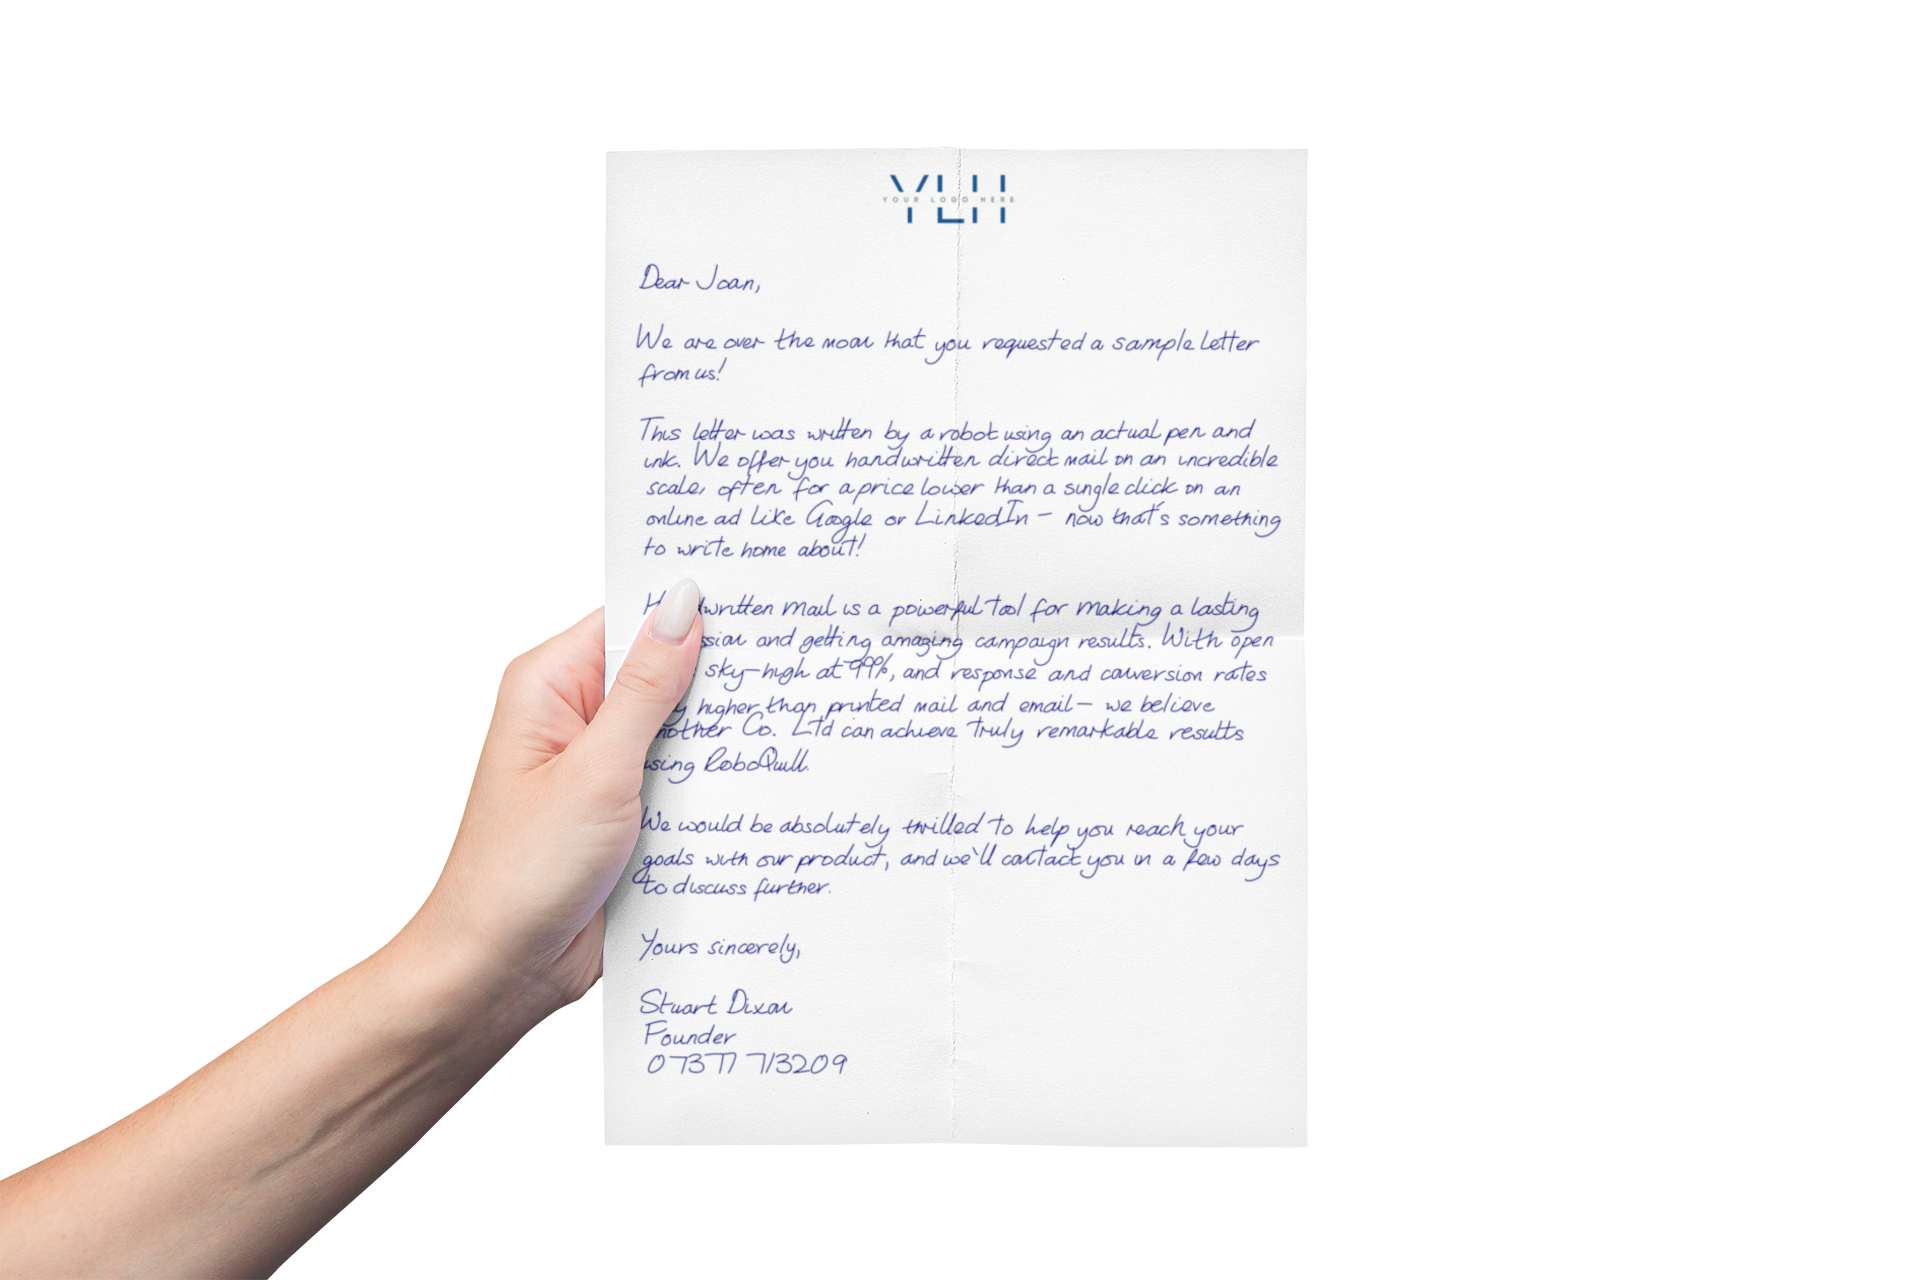 YLH
YOUR LOGO HERE
Dear Joan,
We are over the moon that you requested a sample letter
from us!
This letter was written by a robot using an actual pen and
ink. We offer you handwritten direct mail on an incredible
scale, often for a price lower than a single click on an
online ad like Google or LinkedIn - now that's something
to write home about!
mail is a powerful tool for making a lasting
and getting amazing campaign results. With open
sky-high at 99%, and response and conversion rates
higher than printed mail and email - we believe
Another Co. Ltd can achieve truly remarkable results
using RoboQuill.
We would be absolutely thrilled to help you reach your
goals with our product, and we'll contact you in a few days
to discuss further.
Yours sincerely,
Stuart Dixon
Founder
07377 713209